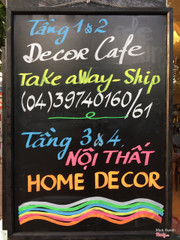 Tầng 1&2
Decor Cafe
Take aWay-Ship
(04)39740160/61
Tầng 3&4
NỘI THẤT
HOME DECOR